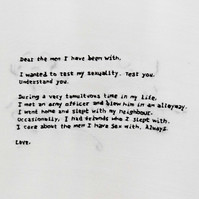 Dear the men I have been with.
I wanted to test my sexuality. Test you.
Understand you.
During a very tumultuous time in my life.
I met an army officer and blew him in an alleyway.
I went home and slept with my neighbour.
Occasionally, I had friends who I slept with.
I care about the men I have sex with. Always.
Love.